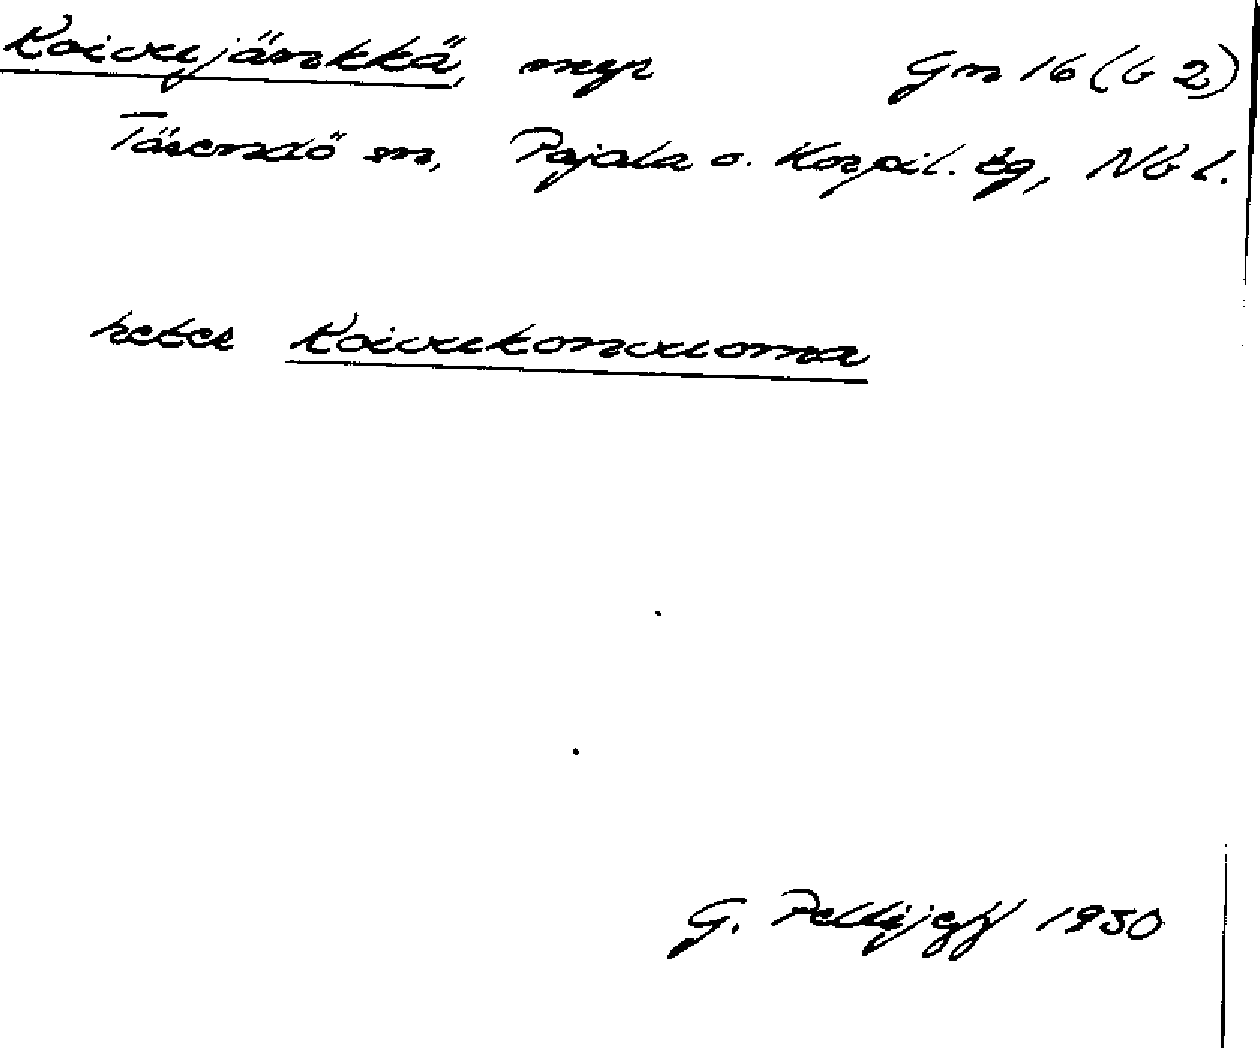 Koivujänkkä, myr Gm 16 (b 2)
Tärendö sn, Pajala o. Korpil. tg, Nb l.
heter Koivukonvuoma
G. Pellijeff 1950